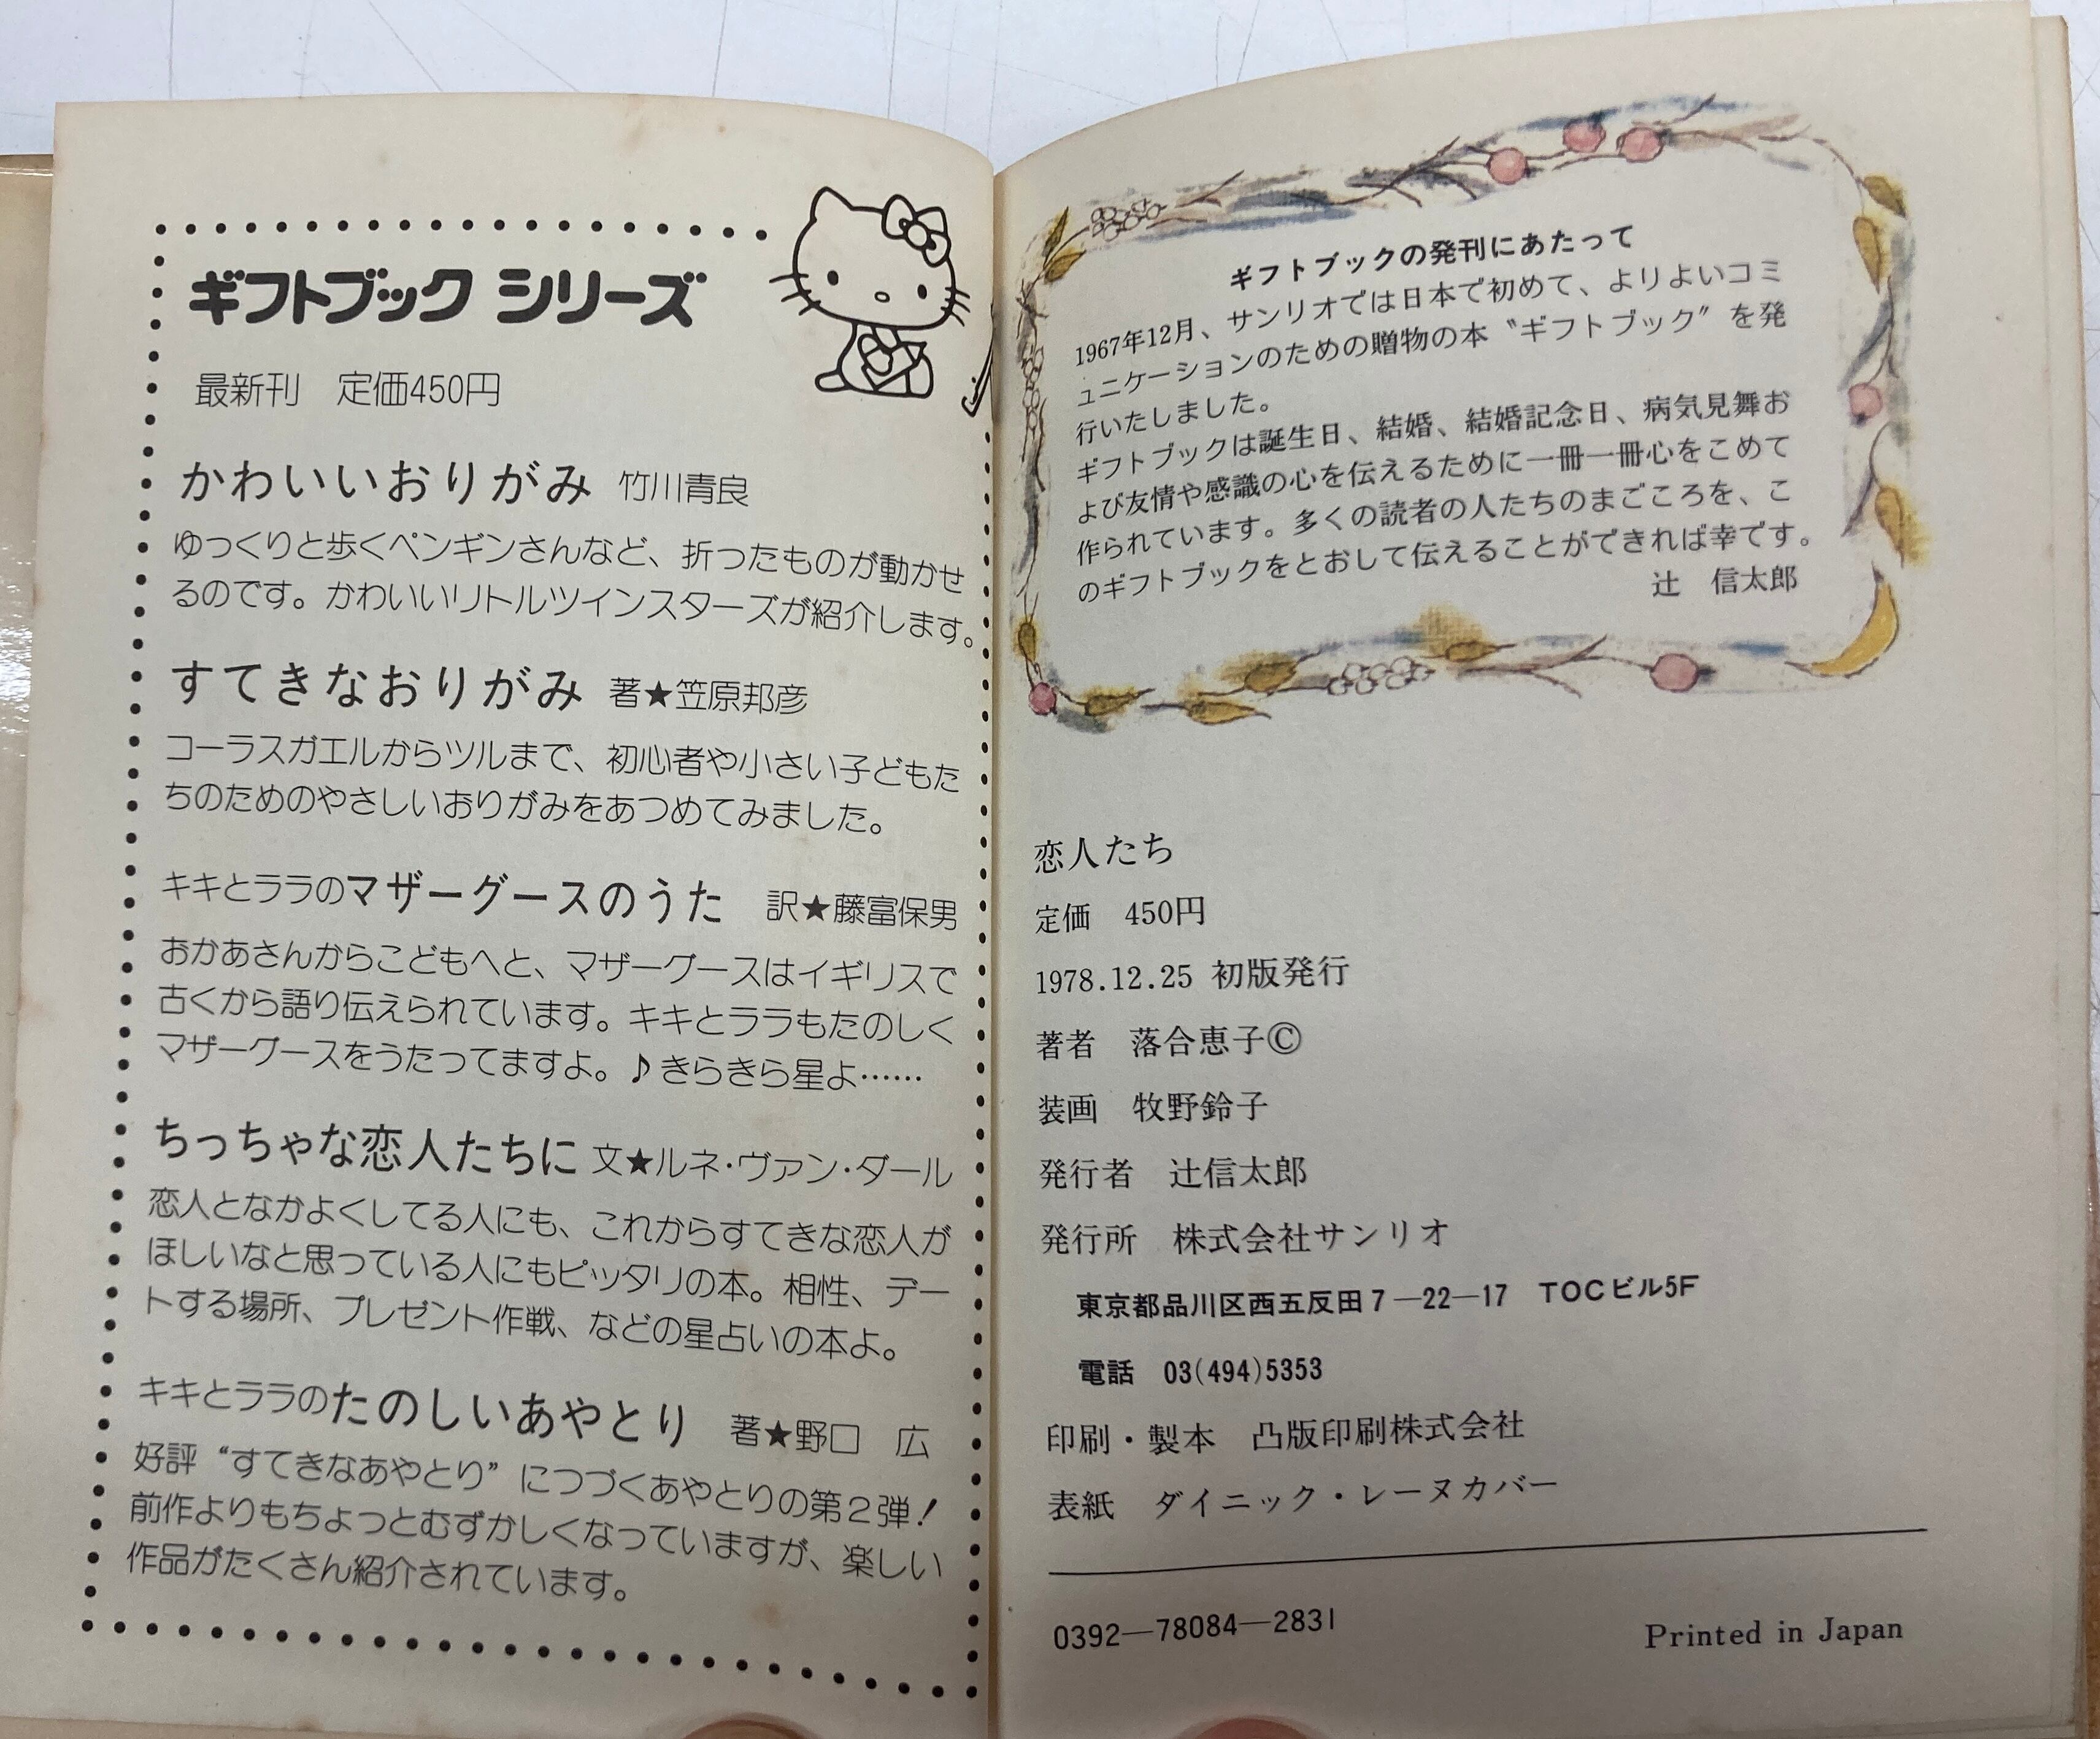 ギフトブック シリーズ
最新刊　定価450円
かわいいおりがみ 竹川青良
ゆっくりと歩くペンギンさんなど、折ったものが動かせ
るのです。かわいいリトルツインスターズが紹介します。
すてきなおりがみ 著★笠原邦彦
コーラスガエルからツルまで、初心者や小さい子どもた
ちのためのやさしいおりがみをあつめてみました。
キキとララのマザーグースのうた　訳★藤富保男
おかあさんからこどもへと、マザーグースはイギリスで
古くから語り伝えられています。キキとララもたのしく
マザーグースをうたってますよ。♪きらきら星よ……
ちっちゃな恋人たちに 文★ルネ・ヴァン・ダール
恋人となかよくしてる人にも、これからすてきな恋人が
ほしいなと思っている人にもピッタリの本。相性、デー
トする場所、プレゼント作戦、などの星占いの本よ。
キキとララのたのしいあやとり　著★野口　広
好評“すてきなあやとり”につづくあやとりの第2弾！
前作よりもちょっとむずかしくなっていますが、楽しい
作品がたくさん紹介されています。
ギフトブックの発刊にあたって
1967年12月、サンリオでは日本で初めて、よりよいコミ
ュニケーションのための贈物の本〝ギフトブック〞を発
行いたしました。
ギフトブックは誕生日、結婚、結婚記念日、病気見舞お
よび友情や感識の心を伝えるために一冊一冊心をこめて
作られています。多くの読者の人たちのまごころを、こ
のギフトブックをとおして伝えることができれば幸です。
辻　信太郎
恋人たち
定価　450円
1978.12.25 初版発行
著者　落合恵子©
装画　牧野鈴子
発行者　辻信太郎
発行所　株式会社サンリオ
東京都品川区西五反田7—22—17　TOCビル5F
電話　03(494)5353
印刷・製本　凸版印刷株式会社
表紙　ダイニック・レーヌカバー
0392—78084—2831
Printed in Japan